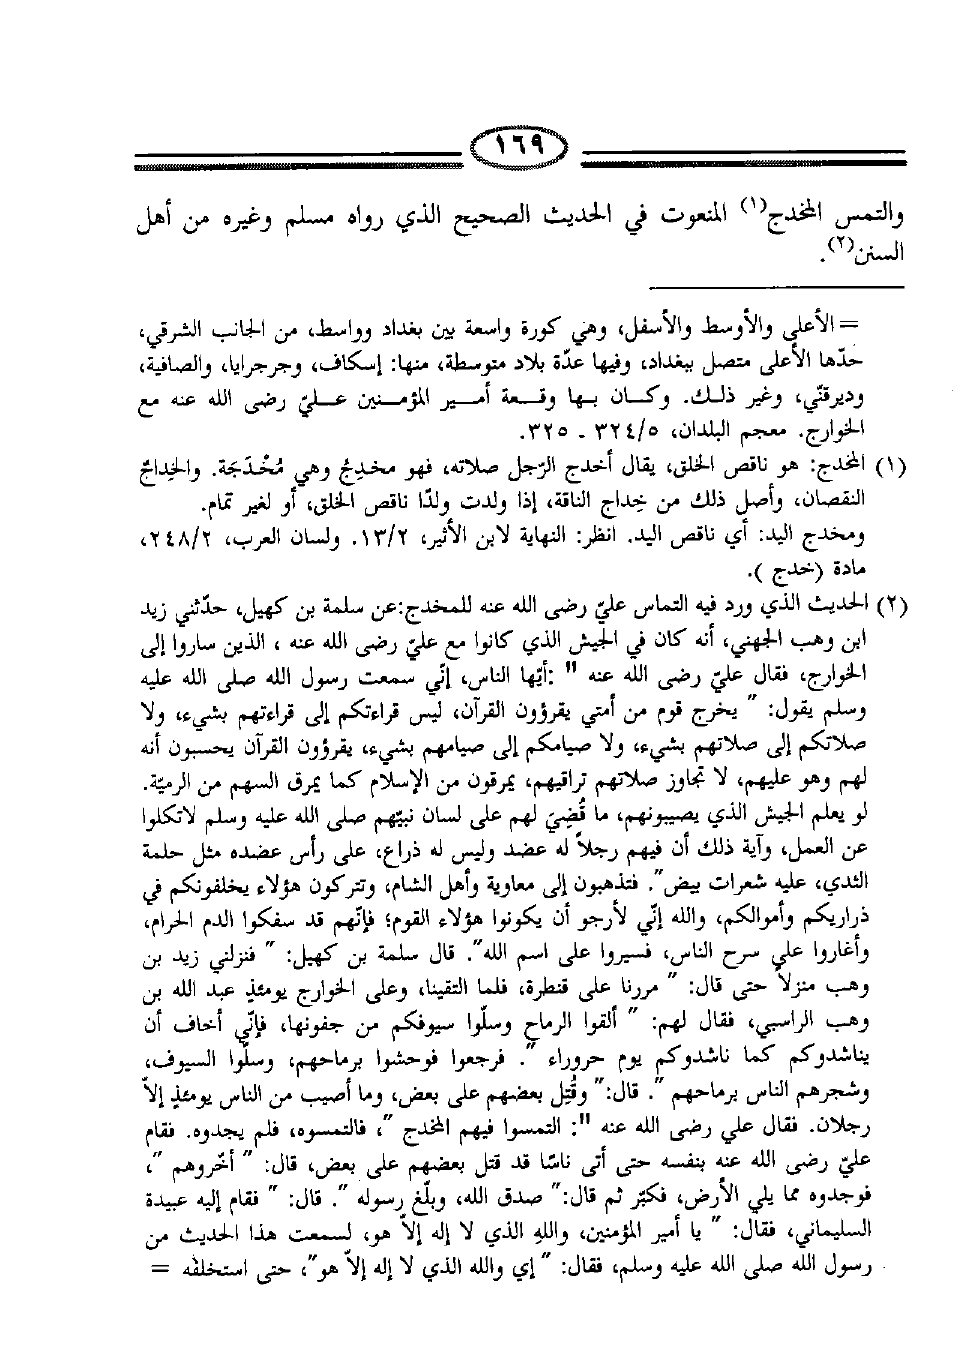 ١٦٩
والتمس المخدج(١) المنعوت في الحديث الصحيح الذي رواه مسلم وغيره من أهل
السنن(٢).
= الأعلى والأوسط والأسفل، وهي كورة واسعة بين بغداد وواسط، من الجانب الشرقي،
حدّها الأعلى متصل ببغداد، وفيها عدّة بلاد متوسطة، منها: إسكاف، وجرجرايا، والصافية،
وديرقنّي، وغير ذلك. وكان بها وقعة أمير المؤمنين عليّ رضى الله عنه مع
الخوارج. معجم البلدان، ٣٢٤/٥ ـ ٣٢٥.
(١) المخدج: هو ناقص الخلق، يقال أخدج الرّجل صلاته، فهو مخدِجٌ وهي مُخْدَجَة. والخِداجُ
النقصان، وأصل ذلك من خِداج الناقة، إذا ولدت ولدًا ناقص الخلق، أو لغير تمام.
ومخدج اليد: أي ناقص اليد. انظر: النهاية لابن الأثير، ١٣/٢. ولسان العرب، ٢٤٨/٢،
مادة (خدج ).
(٢) الحديث الذي ورد فيه التماس عليّ رضى الله عنه للمخدج:عن سلمة بن كهيل، حدّثني زيد
ابن وهب الجهني، أنه كان في الجيش الذي كانوا مع عليّ رضى الله عنه ، الذين ساروا إلى
الخوارج، فقال عليّ رضى الله عنه " :أيّها الناس، إنّي سمعت رسول الله صلى الله عليه
وسلم يقول: " يخرج قوم من أمتي يقرؤون القرآن، ليس قراءتكم إلى قراءتهم بشيء، ولا
صلاتكم إلى صلاتهم بشيء، ولا صيامكم إلى صيامهم بشيء، يقرؤون القرآن يحسبون أنه
لهم وهو عليهم، لا تجاوز صلاتهم تراقيهم، يمرقون من الإسلام كما يمرق السهم من الرميّة.
لو يعلم الجيش الذي يصيبونهم، ما قُضِيَ لهم على لسان نبيّهم صلى الله عليه وسلم لاتكلوا
عن العمل، وآية ذلك أن فيهم رجلاً له عضد وليس له ذراع، على رأس عضده مثل حلمة
الثدي، عليه شعرات بيض". فتذهبون إلى معاوية وأهل الشام، وتتركون هؤلاء يخلفونكم في
ذراريكم وأموالكم، والله إنّي لأرجو أن يكونوا هؤلاء القوم؛ فإنّهم قد سفكوا الدم الحرام،
وأغاروا علي سرح الناس، فسيروا على اسم الله". قال سلمة بن كهيل: " فنزلني زيد بن
وهب منزلاً حتى قال: " مررنا على قنطرة، فلما التقينا، وعلى الخوارج يومئذٍ عبد الله بن
وهب الراسبي، فقال لهم: " ألقوا الرماح وسلّوا سيوفكم من جفونها، فإنّي أخاف أن
يناشدوكم كما ناشدوكم يوم حروراء ". فرجعوا فوحشوا برماحهم، وسلّوا السيوف،
وشجرهم الناس برماحهم ". قال:" وقُتِل بعضهم على بعض، وما أصيب من الناس يومئذٍ إلاّ
رجلان. فقال علي رضى الله عنه ": التمسوا فيهم المخدج "، فالتمسوه، فلم يجدوه. فقام
عليّ رضى الله عنه بنفسه حتى أتى ناسًا قد قتل بعضهم على بعض، قال: " أخّروهم "،
فوجدوه مما يلي الأرض، فكبّر ثم قال:" صدق الله، وبلّغ رسوله ". قال: " فقام إليه عبيدة
السليماني، فقال: " يا أمير المؤمنين، واللهِ الذي لا إله إلاّ هو، لسمعت هذا الحديث من
رسول الله صلى الله عليه وسلم، فقال: " إي والله الذي لا إله إلاّ هو"، حتى استحلفه =